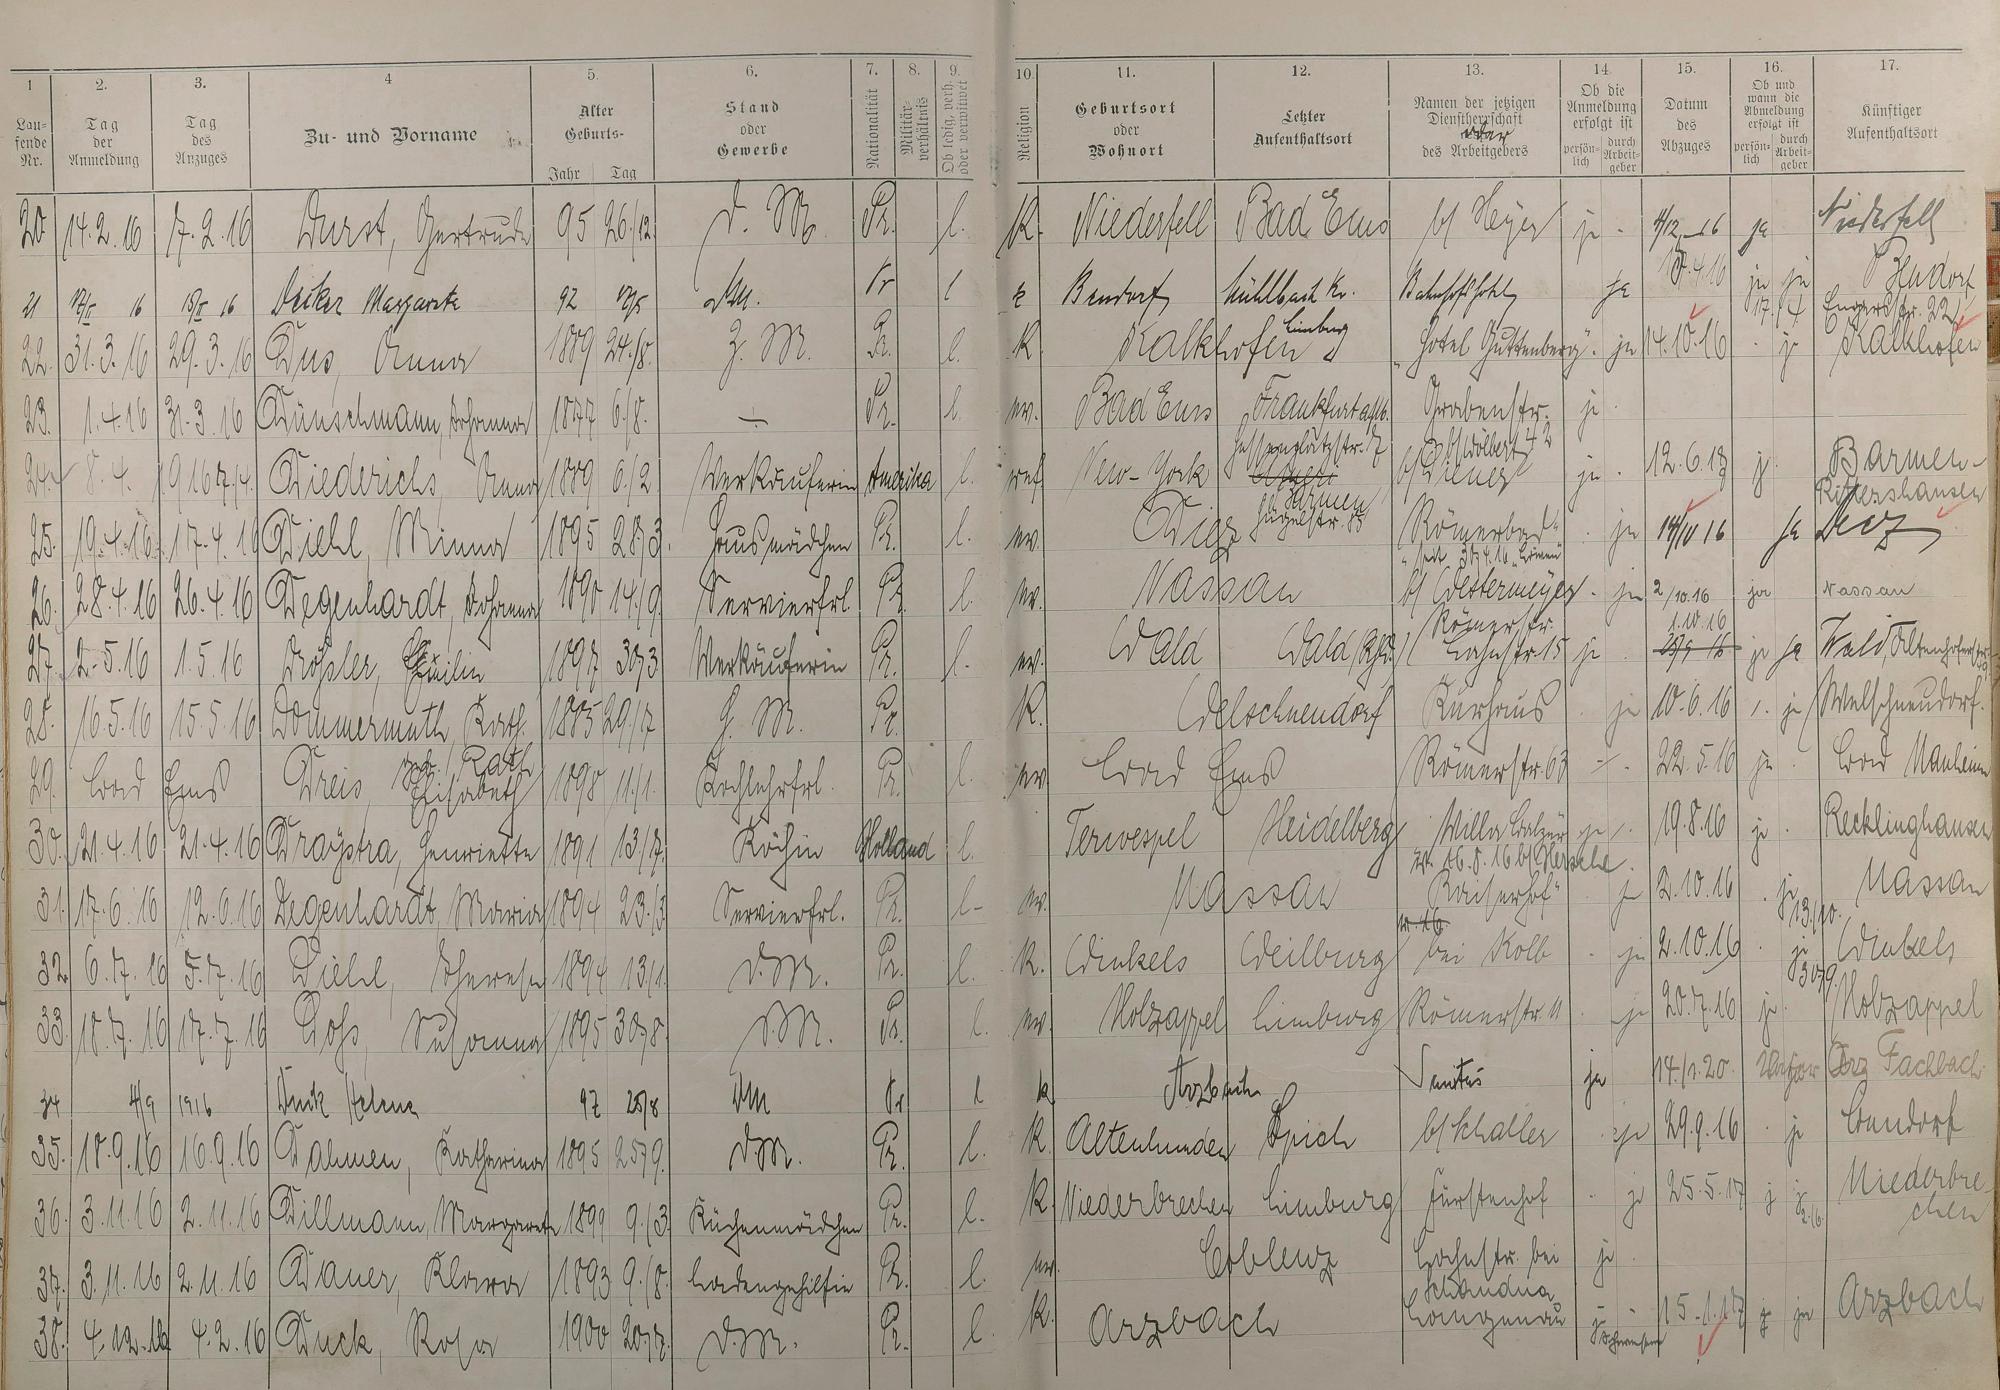 1 2. 3. 4 5. 6. 7. 8. 9. 10. 11. 12. 13. 14. 15. 16. 17.
Laufende Nr. Tag der Anmeldung Tag des Anzuges Zu- und Vorname Alter Geburts- Jahr Tag Stand oder Gewerbe Nationalität Militärverhältnis Ob ledig, verh. oder verwitwet Religion Geburtsort oder Wohnort Letzter Aufenthaltsort Namen der jetzigen Dienstherrschaft oder des Arbeitgebers Ob die Anmeldung erfolgt ist persönlich durch Arbeitgeber Datum des Abzuges Ob und wann die Abmeldung erfolgt ist persönlich durch Arbeitgeber Künftiger Aufenthaltsort
20 14.2.16 7.2.16 Durst, Gertrude 95 26/12. D. M. Pr. l. K. Niederfell Bad Ems b/ Heyer ja - 4/12.16 ja Niederfell
21 16 16 Decker Margarete 92 DM. Pr l k Bendorf Mühlbach Kr. Bahnhofhotel ja 15.4.16 ja ja 17./4 Bendorf Engersstr. 22
22. 31.3.16 29.3.16 Dus, Anna 1889 24./8. Z. M. Pr. l. K. Kalkhofen Limburg "Hotel Guttenberg" - ja 14.10.16 - ja Kalkhofen
23. 1.4.16 31.3.16 Dünschmann, Johanna 1877 6./8. — Pr. l. ev. Bad Ems Frankfurt a/M. Grabenstr. 42 ja -
24. 8.4. 1916 7./4. Diederichs, Anna 1889 6./2. Verkäuferin Amerika l. ref. New-York Barmen b/ Wiener ja - 12.6.17 ja Barmen-Rittershausen
25. 19.4.16. 17.4.16 Diehl, Minna 1895 28/3. Hausmädchen Pr. l. ev. Diez "Römerbad" - ja 14/10 16 ja Diez
26. 28.4.16 26.4.16 Degenhardt, Johanna 1890 14./9. Servierfrl. Pr. l. ev. Nassau b/ Westermeyer - ja 2/10.16 ja Nassau
27. 2.5.16 1.5.16 Drösler, Emilie 1897 30/3 Verkäuferin Pr. l. ev. Wald Wald (Rhld.) Römerstr. Lahnstr. 15 ja - 1.10.16 ja ja Wald, Altenhoferstr.
28. 16.5.16 15.5.16 Dommermuth, Kath. 1885 29/7 Z. M. Pr. K. Welschneudorf Kurhaus - ja 10.6.16 - ja Welschneudorf.
29. Bad Ems Dreis, Kath. Elisabeth 1898 11./1. Kochlehrfrl. Pr. l. ev. Bad Ems Römerstr. 63 - 22.5.16 ja - Bad Nauheim
30. 21.4.16 21.4.16 Draystra, Henriette 1891 13/7. Köchin Holland l. Terwespel Heidelberg Villa Balzer ja - 19.8.16 ja - Recklinghausen
31. 17.6.16 12.6.16 Degenhardt, Maria 1894 23./3. Servierfrl. Pr. l. ev. Nassau "Kaiserhof" ja 2.10.16 - ja 13./10. Nassau
32. 6.7.16 5.7.16 Diehl, Therese 1894 13/1. D.M. Pr. l. K. Winkels Weilburg bei Kolb - ja 2.10.16 - ja 30/9. Winkels
33. 18.7.16 17.7.16 Dohs, Susanna 1895 30/8. D.M. Pr. l. ev. Holzappel Limburg Römerstr. 11 - ja 20.7.16 ja - Holzappel
34 4/9 1916 Duck Helene 97 25/8 DM Pr l k Arzbach Sanitas ja 14./1.20. Fachbach
35. 18.9.16 16.9.16 Dahmen, Katharina 1895 25/9. D.M. Pr. l. K. Altenhunden Spich b/ Schaller - ja 29.9.16 - ja Bendorf
36. 3.11.16 2.11.16 Dillmann, Margarete 1899 9./3. Küchenmädchen Pr. l. K. Niederbrechen Limburg Fürstenhof - ja 25.5.17 j ja Niederbrechen
37. 3.11.16 2.11.16 Dauer, Klara 1893 9./8. Ladengehilfin Pr. l. ev. Coblenz Lahnstr. bei Schandua ja -
38. 4.12.16 4.2.16 Duck, Rosa 1900 20/7. D.M. Pr. l. K. Arzbach Langenau ja - 15.1.17 ja ja Arzbach